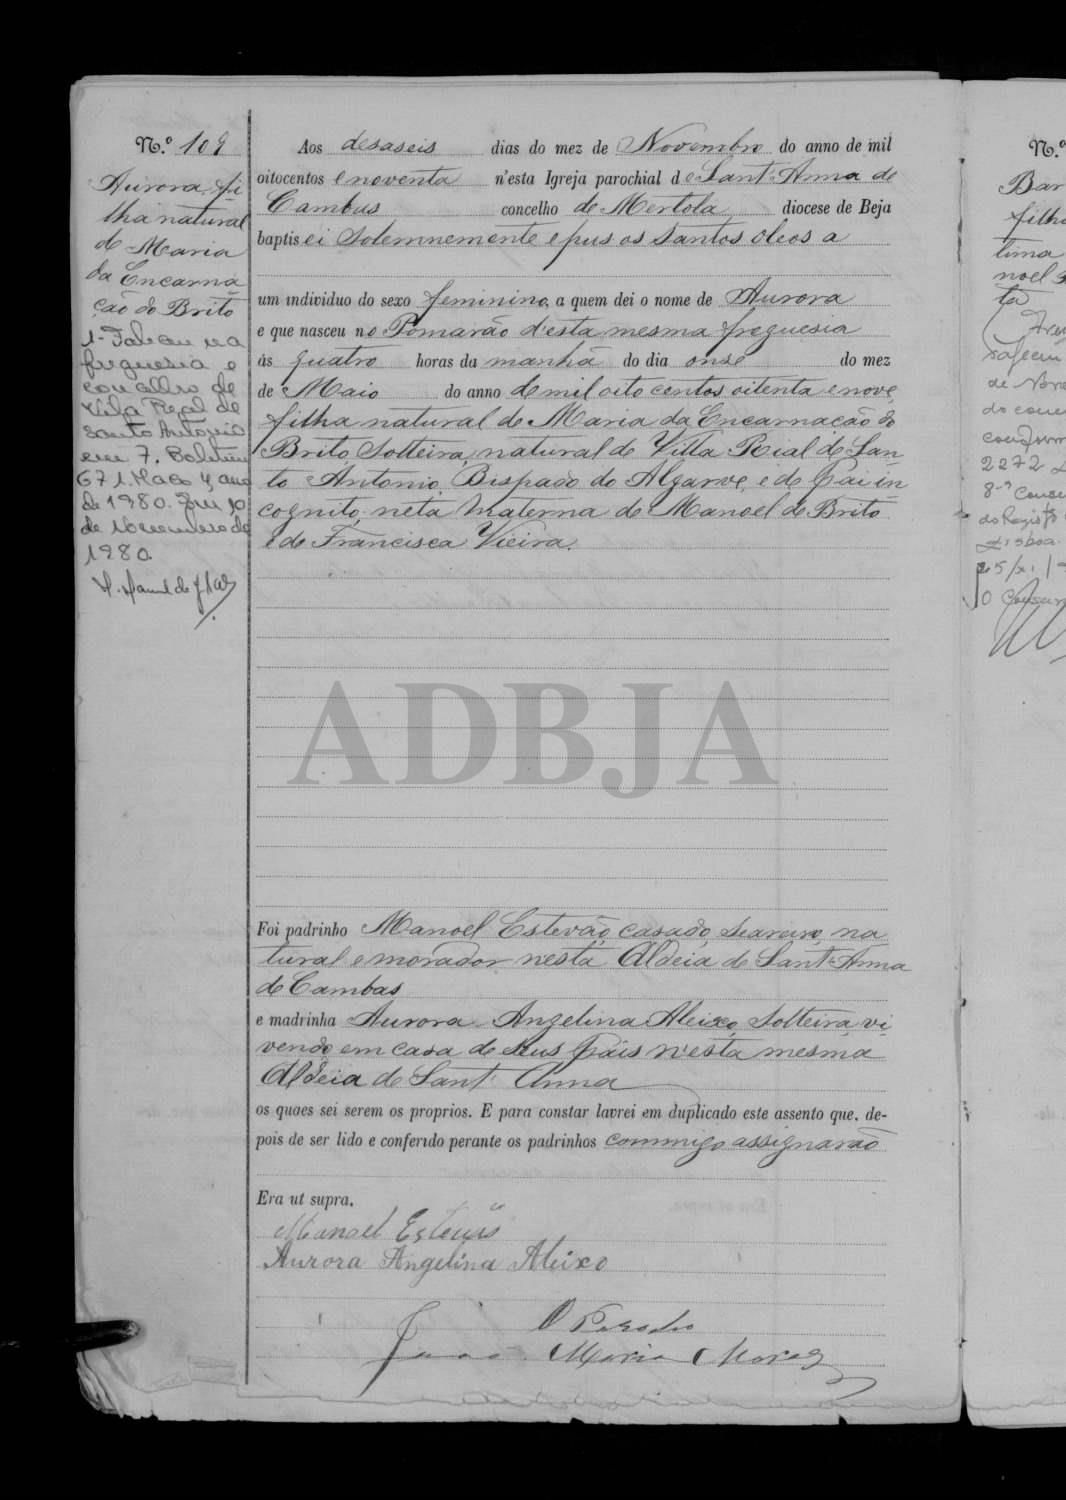 N.º 109
Aurora, fi
lha natural
de Maria
da Encarna
ção do Brito
1- Faleceu na
freguesia e
concelho de
Vila Real de
Santo António
em 7. Boletim
671. Maço 4, ano
de 1980. Em 10
de Novembro de
1980.
Aos desaseis dias do mez de Novembro do anno de mil
oitocentos e noventa n'esta Igreja parochial de Sant'Anna de
Cambas concelho de Mertola diocese de Beja
baptisei Solemnemente e pus os Santos Oleos a
um individuo do sexo feminino, a quem dei o nome de Aurora
e que nasceu no Pomarão d'esta mesma freguesia
ás quatro horas da manhã do dia onse do mez
de Maio do anno de mil oito centos oitenta e nove,
filha natural de Maria da Encarnação do
Brito Solteira, natural de Villa Rial de San-
to Antonio, Bispado do Algarve, e de pai in
cognito; neta materna de Manoel de Brito
e de Francisca Vieira.
ADBJA
Foi padrinho Manoel Estevão, casado, Seareiro, na
tural e morador nesta Aldeia de Sant'Anna
de Cambas
e madrinha Aurora Angelina Aleixo, Solteira, vi-
vendo em casa de seus pais n'esta mesma
Aldeia de Sant'Anna
os quaes sei serem os proprios. E para constar lavrei em duplicado este assento que, de-
pois de ser lido e conferido perante os padrinhos commigo assignarão
Era ut supra.
Manoel Estevão
Aurora Angelina Aleixo
O Parocho
João Maria
N.º
Bar
filh
tima
noel
ta
de Nov
do conc
2272
8.ª Conse
do Registo
Lisboa.
O Conser